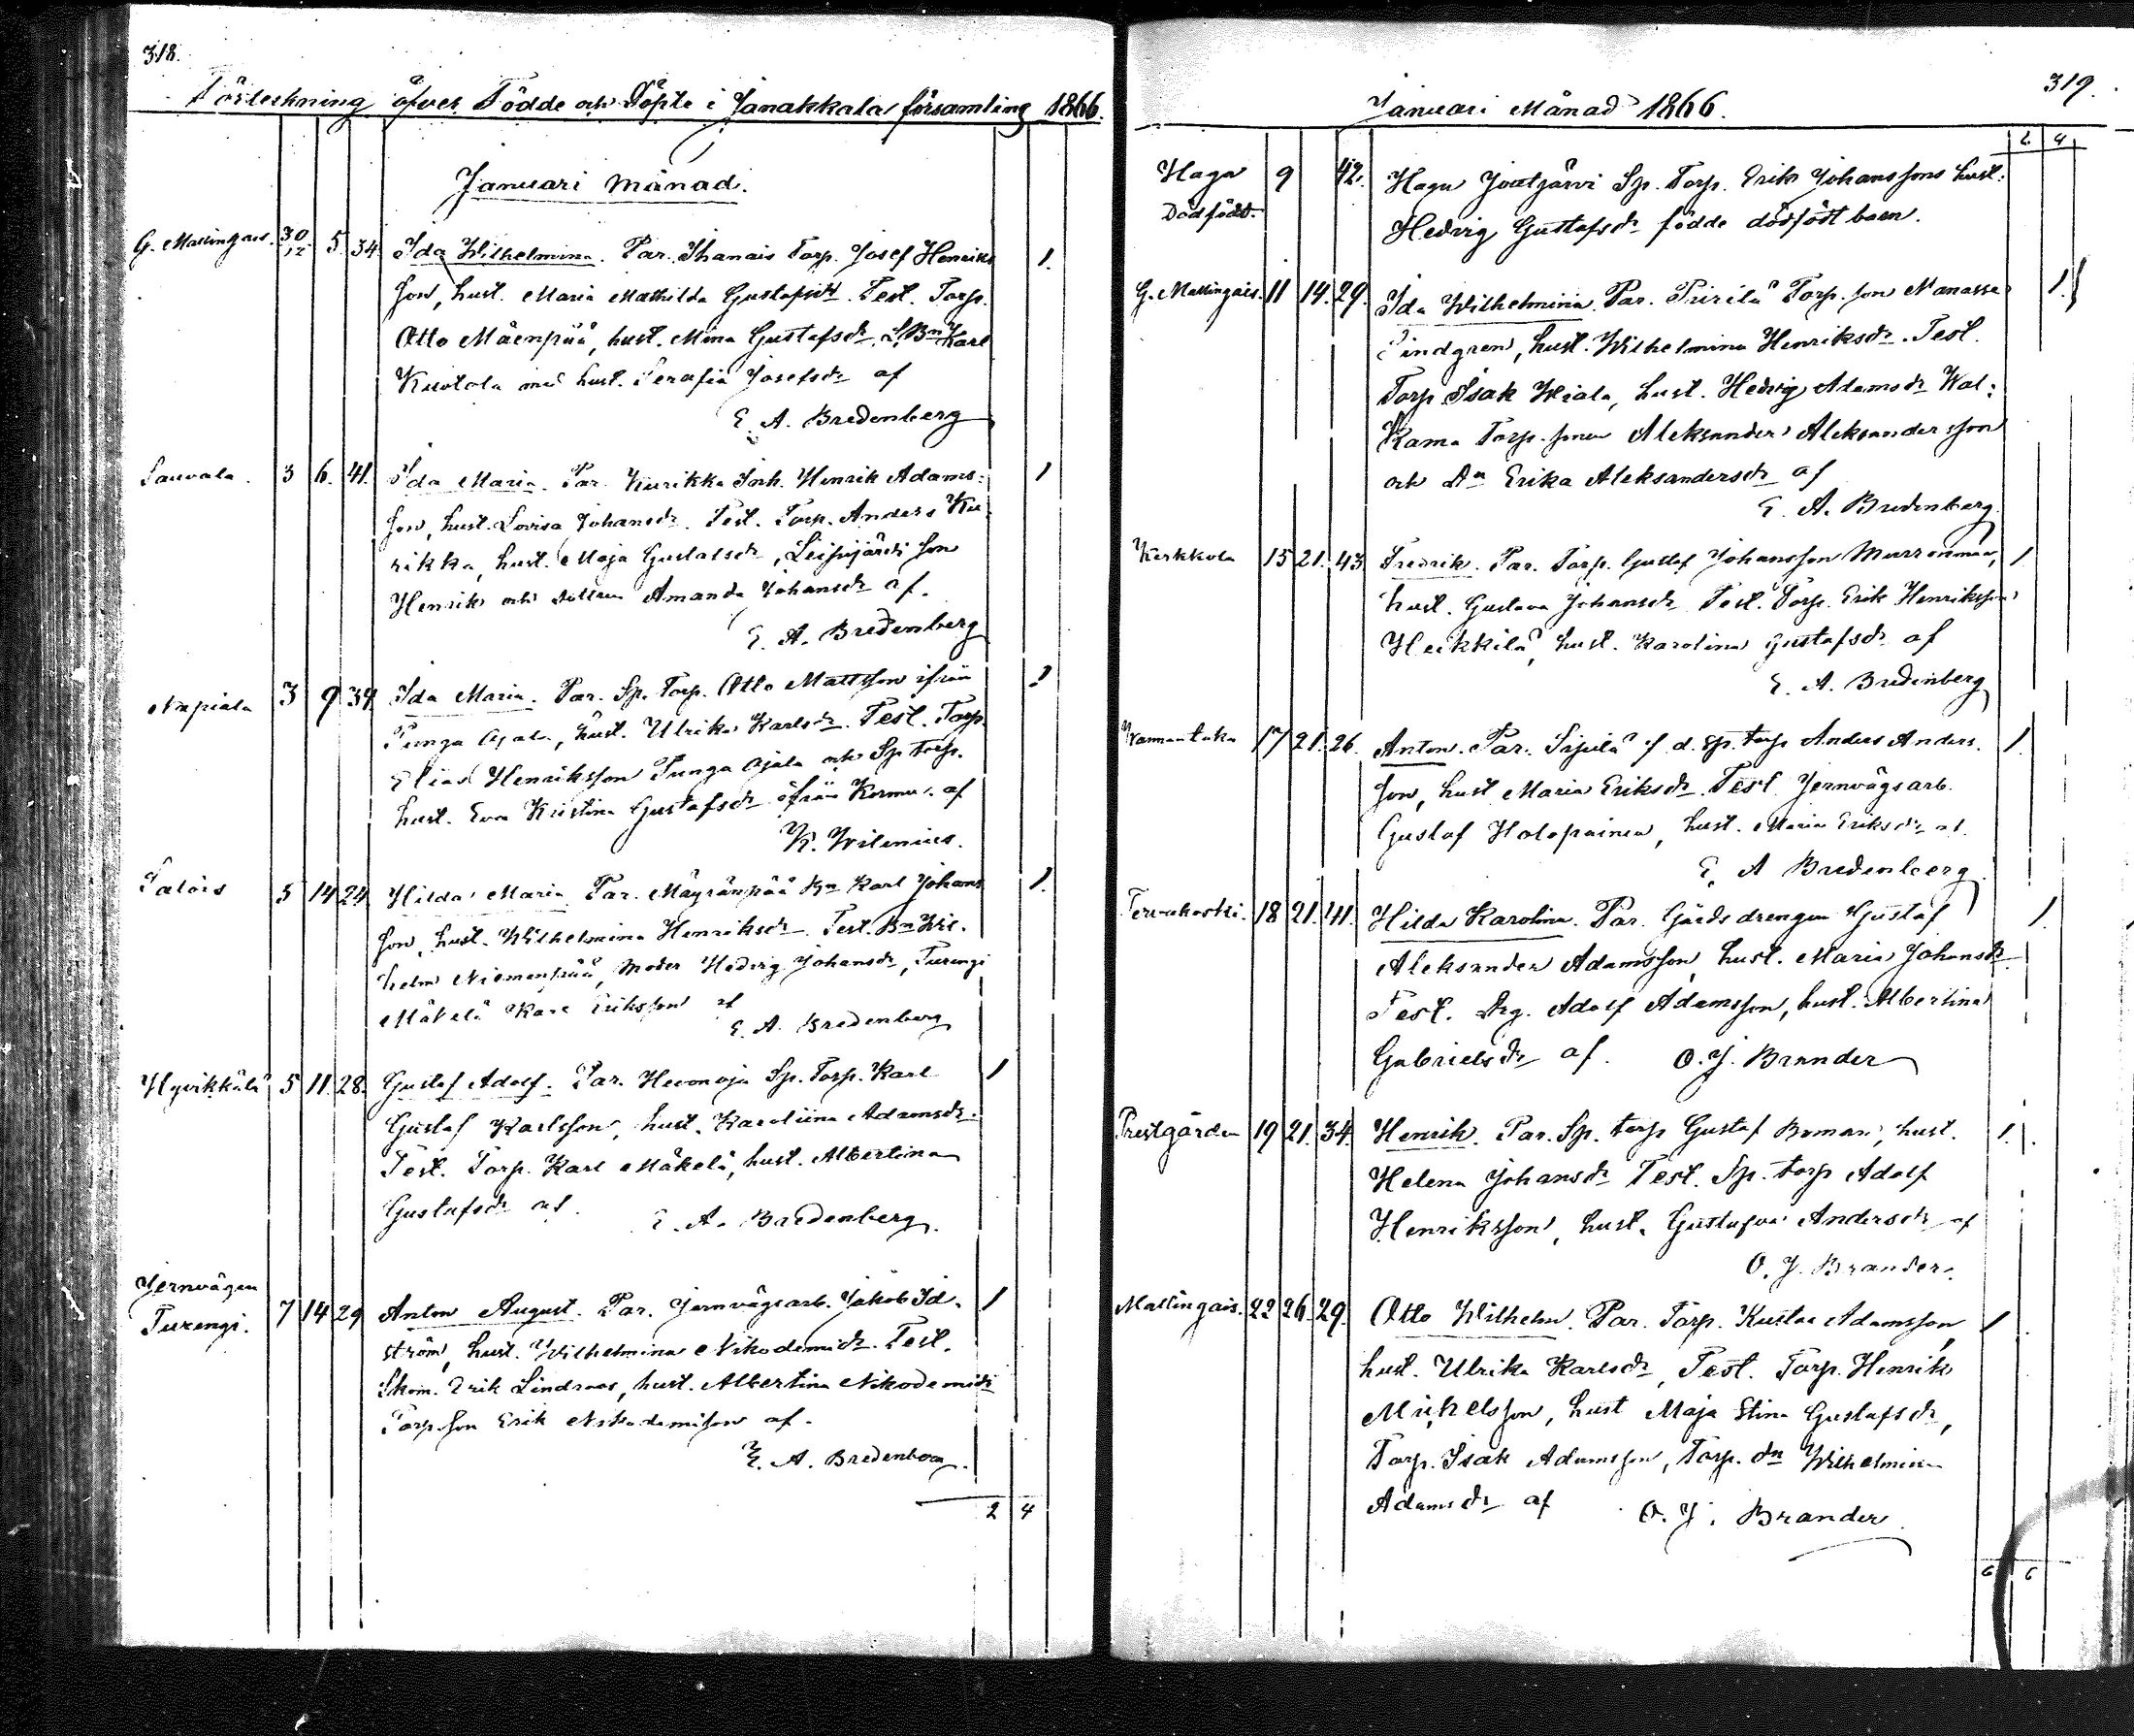 318.
Förteckning öfver Födde och Döpte i Janakkala församling 1866.
Januari månad.
G. Mallingais. 30/12 5. 34. Ida Wilhelmina. Par. Ihanais Torp. Josef Henriks 1.
son, hust. Maria Mathilda Gustafsdr. Test. Torp.
Otto Mäenpää, hust. Mina Gustafsdr. Karl
med hust. Serafia Josefsdr af
E. A. Bredenberg
Sauvala. 3 6. 41. Ida Maria. Par. Kurikka Inh. Henrik Adams: 1
son, hust. Lovisa Johansdr. Test. Torp. Anders Ku
rikka, hust. Maja Gustafsdr, son
Henrik och dottern Amanda Johansdr af.
E. A. Bredenberg
Napiala 3 9 34 Ida Maria. Par. Sp. Torp. Otto Mattsson ifrån 1
Punga Ojala, hust. Ulrika Karlsdr. Test. Torp.
Elias Henriksson Punga Ojala och Sp. torp.
hust. Eva Kristina Gustafsdr ifrån af
K. Wilenius.
5 14 24 Hilda Maria Par. Mäyränpää Bn Karl Johans 1.
son, hust. Wilhelmina Henriksdr. Test. Bn Wil.
helm Niemenpää, Moder Hedvig Johansdr, Turengi
Mäkelä Karl Eriksson af
E. A. Bredenberg
Hyvikkälä 5 11. 28. Gustaf Adolf. Par. Hevonoja Sp. Torp. Karl 1
Gustaf Karlsson, hust. Karoliina Adamsdr.
Test. Torp. Karl Mäkelä, hust. Albertina
Gustafsdr af.
E. A. Bredenberg.
Jernvägen
Turengi. 7 14 29 Anton August. Par. Jernvägsarb. Jakob Id. 1
ström, hust. Wilhelmina Nikodemidr. Test.
Skom. Erik Lindroos, hust. Albertina Nikodemidr
Torp. son Erik Nikodemison af.
E. A. Bredenberg.
2 4
319.
Januari Månad 1866.
2. 4
Haga 9 42. Haga Joutjärvi Sp. Torp. Erik Johanssons hust:
Dödfödt. Hedvig Gustafsdr födde dödfödt barn.
G. Mallingais. 11 14. 29. Ida Wilhelmina. Par. Pirilä Torp. son Manasse 1.
Lindgren, hust. Wilhelmina Henriksdr. Test.
Torp. Isak Wiala, hust. Hedvig Adamsdr Wal:
kama Torp. sonen Aleksander Aleksandersson
och Dn Erika Aleksandersdr af
E. A. Bredenberg.
Kerkkola 15 21. 43 Fredrik. Par. Torp. Gustaf Johansson Murronmaa, 1
hust. Gustava Johansdr. Test. Torp. Erik Henriksson
Heikkilä, hust. Karolina Gustafsdr. af
E. A. Bredenberg
Vanantaka 17 21. 26. Anton. Par. f. d. Sp. torp Anders Anders. 1.
son, hust Maria Eriksdr. Test Jernvägsarb.
Gustaf Holopainen, hust. Maria Eriksdr af.
E. A Bredenberg
Tervakoski. 18 21. 41. Hilda Karolina. Par. Gårds drengen Gustaf 1.
Aleksander Adamsson, hust. Maria Johansdr.
Test. Drg. Adolf Adamsson, hust. Albertina
Gabrielsdr af. O. J. Brander
Prestgården 19 21. 34. Henrik. Par. Sp. torp Gustaf Boman, hust. 1.
Helena Johansdr Test. Sp. torp Adolf
Henriksson, hust. Gustafva Andersdr af
O. J. Brander.
Mallingais. 22 26. 29. Otto Wilhelm. Par. Torp. Kustaa Adamsson, 1
hust. Ulrika Karlsdr, Test. Torp. Henrik
Mickelsson, hust Maja Stina Gustafsdr,
Torp. Isak Adamsson, Torp. dn Wilhelmina
Adamsdr af O. J. Brander
6 6